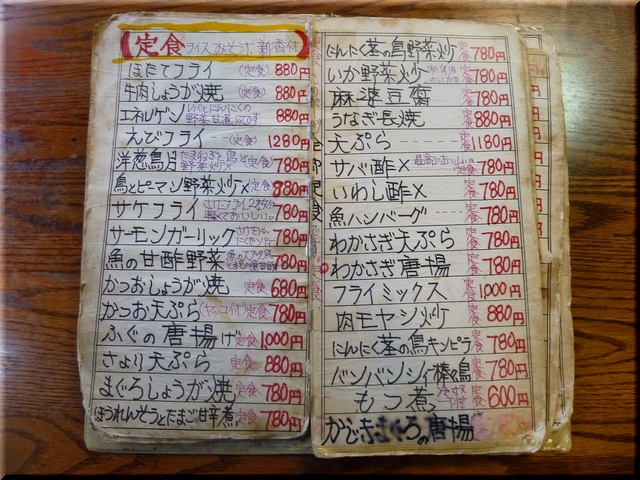 【定食 ライス、みそ汁、新香付】
ほたてフライ (定食) 880円
牛肉しょうが焼 (定食) 880円
エネルゲン レバとにんにくの野菜甘煮風です 780円
えびフライ (定食) 1280円
洋葱鳥片 たまねぎと鳥の野菜炒め (定食) 780円
鳥とピーマン野菜炒メ (定食) 880円
サケフライ 780円
サーモンガーリック 780円
魚の甘酢野菜 780円
かつおしょうが焼 定食 680円
かつお天ぷら (ヤッコ付) 定食 780円
ふぐの唐揚げ 定食 1,000円
さより天ぷら 定食 880円
まぐろしょうが焼 定食 780円
ほうれんそうとたまご甘辛煮 定食 780円
にんにく茎の鳥野菜炒 定食 780円
いか野菜炒メ 定食 780円
麻婆豆腐 定食 780円
うなぎ長焼 定食 880円
天ぷら 定食 1180円
サバ酢〆 定食 780円
いわし酢〆 定食 780円
魚ハンバーグ 定食 780円
わかさぎ天ぷら 定食 780円
わかさぎ唐揚 定食 780円
フライミックス 定食 1,000円
肉モヤシ炒 定食 880円
にんにく茎の鳥キンピラ 定食 780円
バンバンジィ棒々鳥 定食 780円
もつ煮 冷奴付 定食 600円
の唐揚